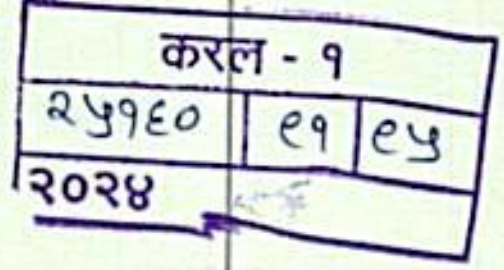 करल - १
२५१६० ९१ ९५
२०२४